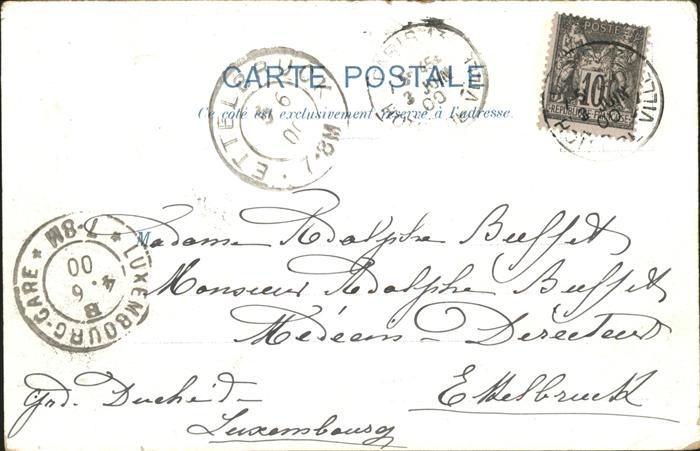 CARTE POSTALE
Ce côté est exclusivement réservé à l'adresse.
POSTE
10
REPUBLIQUE FRANCAISE
PARIS
3 JUIN 00
ETTELBRUCK
7-8M
LUXEMBOURG-GARE * 7-8M *
B
4.6
00
Madame Adolphe Buffet
Monsieur Adolphe Buffet
Médecin-Directeur
Ettelbruck
Grd. Duché d-
Luxembourg